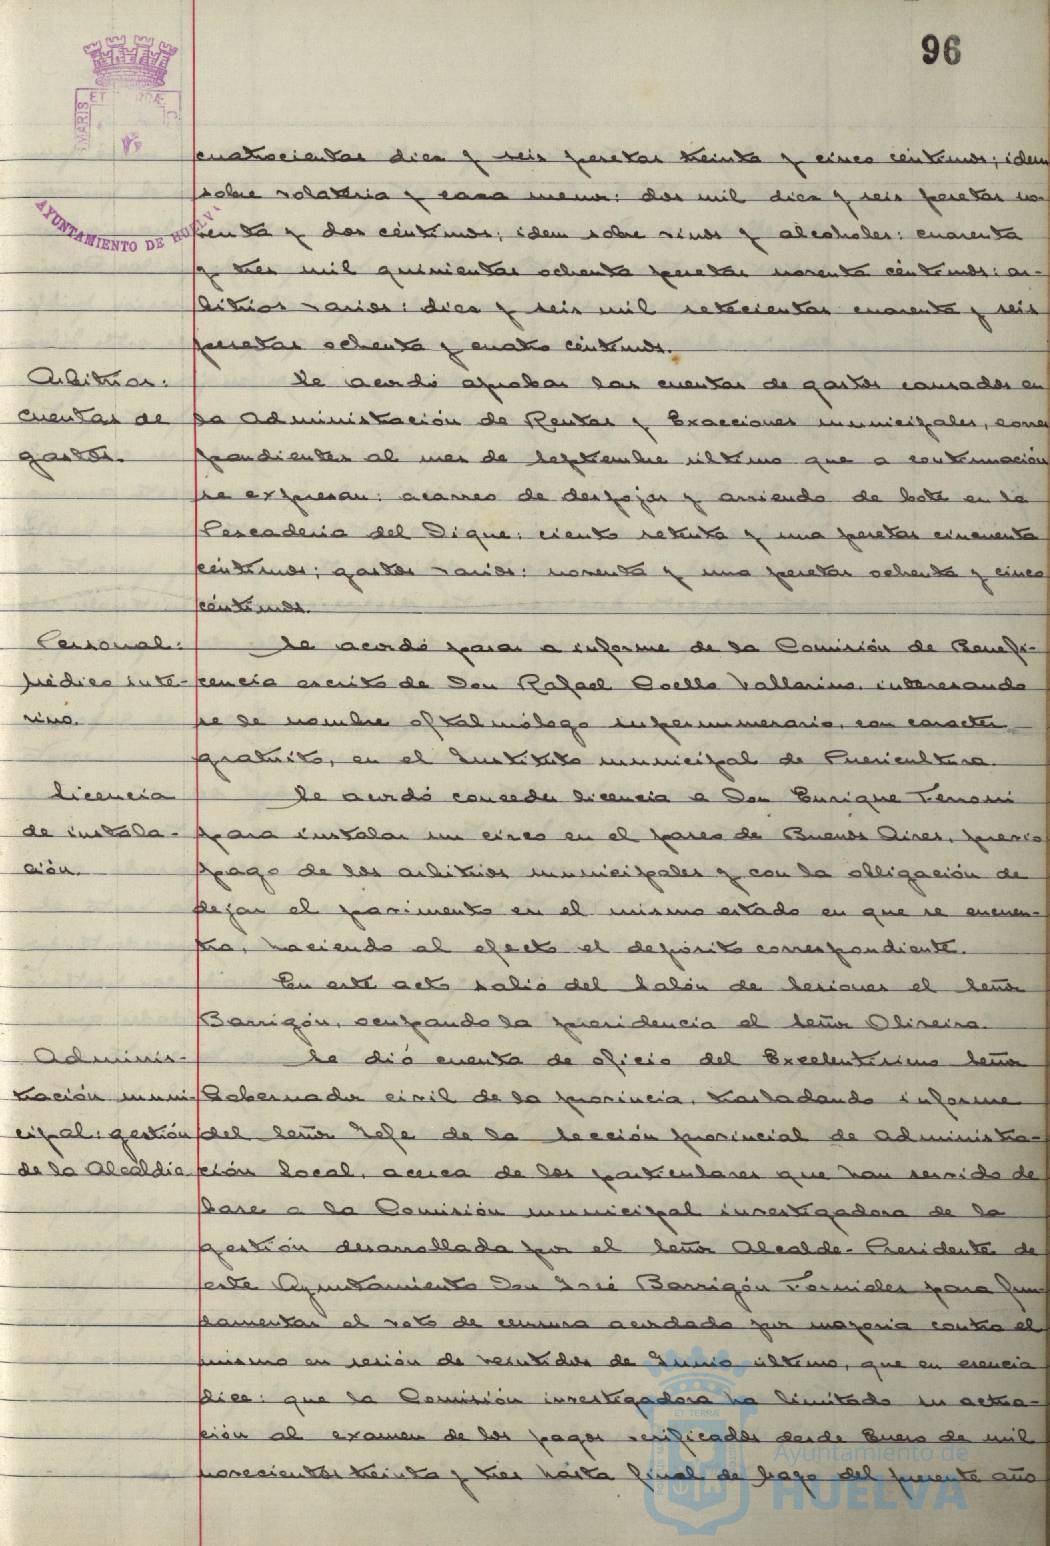 96
MARIS ET TERRÆ
AYUNTAMIENTO DE HUELVA
cuatrocientas diez y seis pesetas treinta y cinco céntimos; idem
sobre volateria y caza menor: dos mil diez y seis pesetas no-
venta y dos céntimos; idem sobre vinos y alcoholes: cuarenta
y tres mil quinientas ochenta pesetas noventa céntimos: ar-
bitrios varios: diez y seis mil setecientas cuarenta y seis
pesetas ochenta y cuatro céntimos.
Arbitrios:
cuentas de
gastos.
Se acordó aprobar las cuentas de gastos causados en
la Administración de Rentas y Exacciones municipales, corres
pondientes al mes de Septiembre último que a continuación
se expresan: acarreo de despojos y arriendo de bote en la
Pescaderia del Dique: ciento setenta y una pesetas cincuenta
céntimos; gastos varios: noventa y una pesetas ochenta y cinco
céntimos.
Personal:
Médico inte-
rino.
Se acordó pasar a informe de la Comisión de Benefi-
cencia escrito de Don Rafael Coello Vallarino, interesando
se le nombre oftalmólogo supernumerario, con caracter
gratuito, en el Instituto municipal de Puericultura.
Licencia
de instala-
ción.
Se acordó conceder licencia a Don Enrique Ferroni
para instalar un circo en el paseo de Buenos Aires, previo
pago de los arbitrios municipales y con la obligación de
dejar el pavimento en el mismo estado en que se encuen-
tra, haciendo al efecto el depósito correspondiente.
En este acto salió del Salón de Sesiones el Señor
Barrigón, ocupando la presidencia el Señor Oliveira.
Adminis-
tración muni-
cipal: gestión
de la Alcaldia
Se dió cuenta de oficio del Excelentísimo Señor
Gobernador civil de la provincia, trasladando informe
del Señor Jefe de la Sección provincial de Administra-
ción local, acerca de los particulares que han servido de
base a la Comisión municipal investigadora de la
gestión desarrollada por el Señor Alcalde-Presidente de
este Ayuntamiento Don José Barrigón Fornieles para fun
damentar el voto de censura acordado por mayoria contra el
mismo en sesión de veintidos de Junio último, que en esencia
dice: que la Comisión investigadora ha limitado su actua-
ción al examen de los pagos verificados desde Enero de mil
novecientos treinta y tres hasta final de Mayo del presente año
Ayuntamiento de
HUELVA